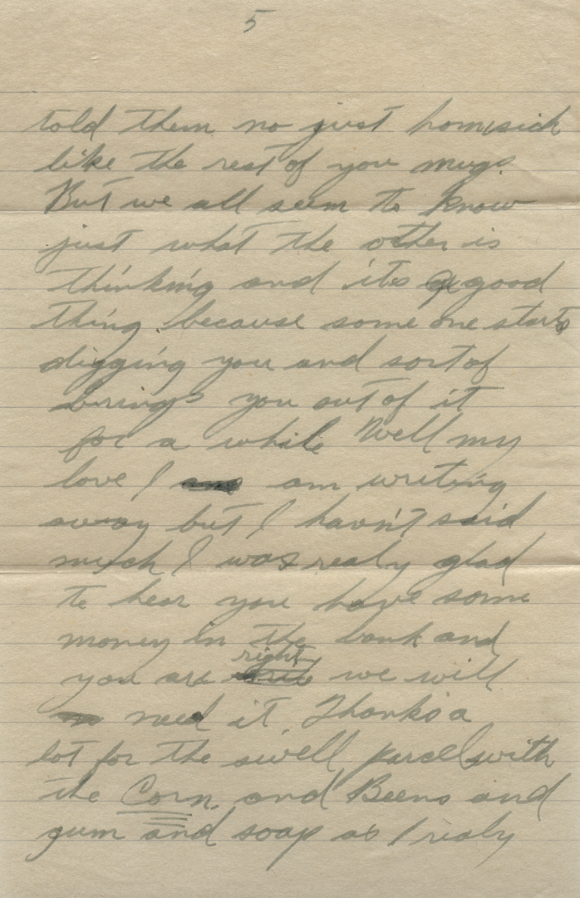 5
told them no just homesick
like the rest of you mugs
But we all seem to know
just what the other is
thinking and its a good
thing because some one starts
digging you and sort of
brings you out of it
for a while Well my
love I am writing
away but I havn't said
much I was realy glad
to hear you have some
money in the bank and
you are right we will
need it. Thanks a
lot for the swell parcel with
the Corn and Beens and
gum and soap as I realy